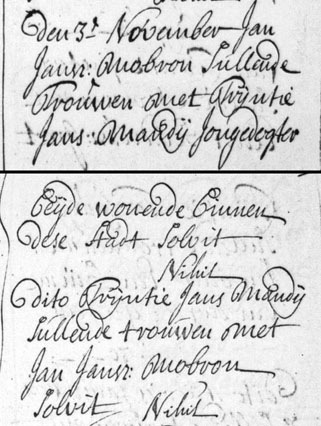 den 3.ᵗ November Jan
Jansz: Mobron Sullende
Trouwen met Trÿntie
Jans Mandÿ Jongedogter
Beÿde wonende Binnen
dese Stadt Solvit
Nihil
dito Trÿntie Jans Mandÿ
Sullende trouwen met
Jan Jansz: Mobron
Solvit Nihil